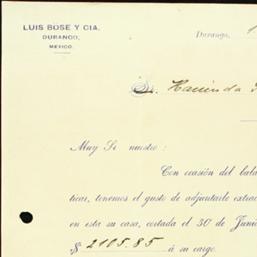 LUIS BOSE Y CIA.
DURANGO,
MEXICO.
Durango, 1
Hacienda
Muy Sr nuestro:
Con ocasión del bala
ticar, tenemos el gusto de adjuntarle extra
en esta su casa, cortada el 30 de Junio
$ 2105.85 á su cargo.